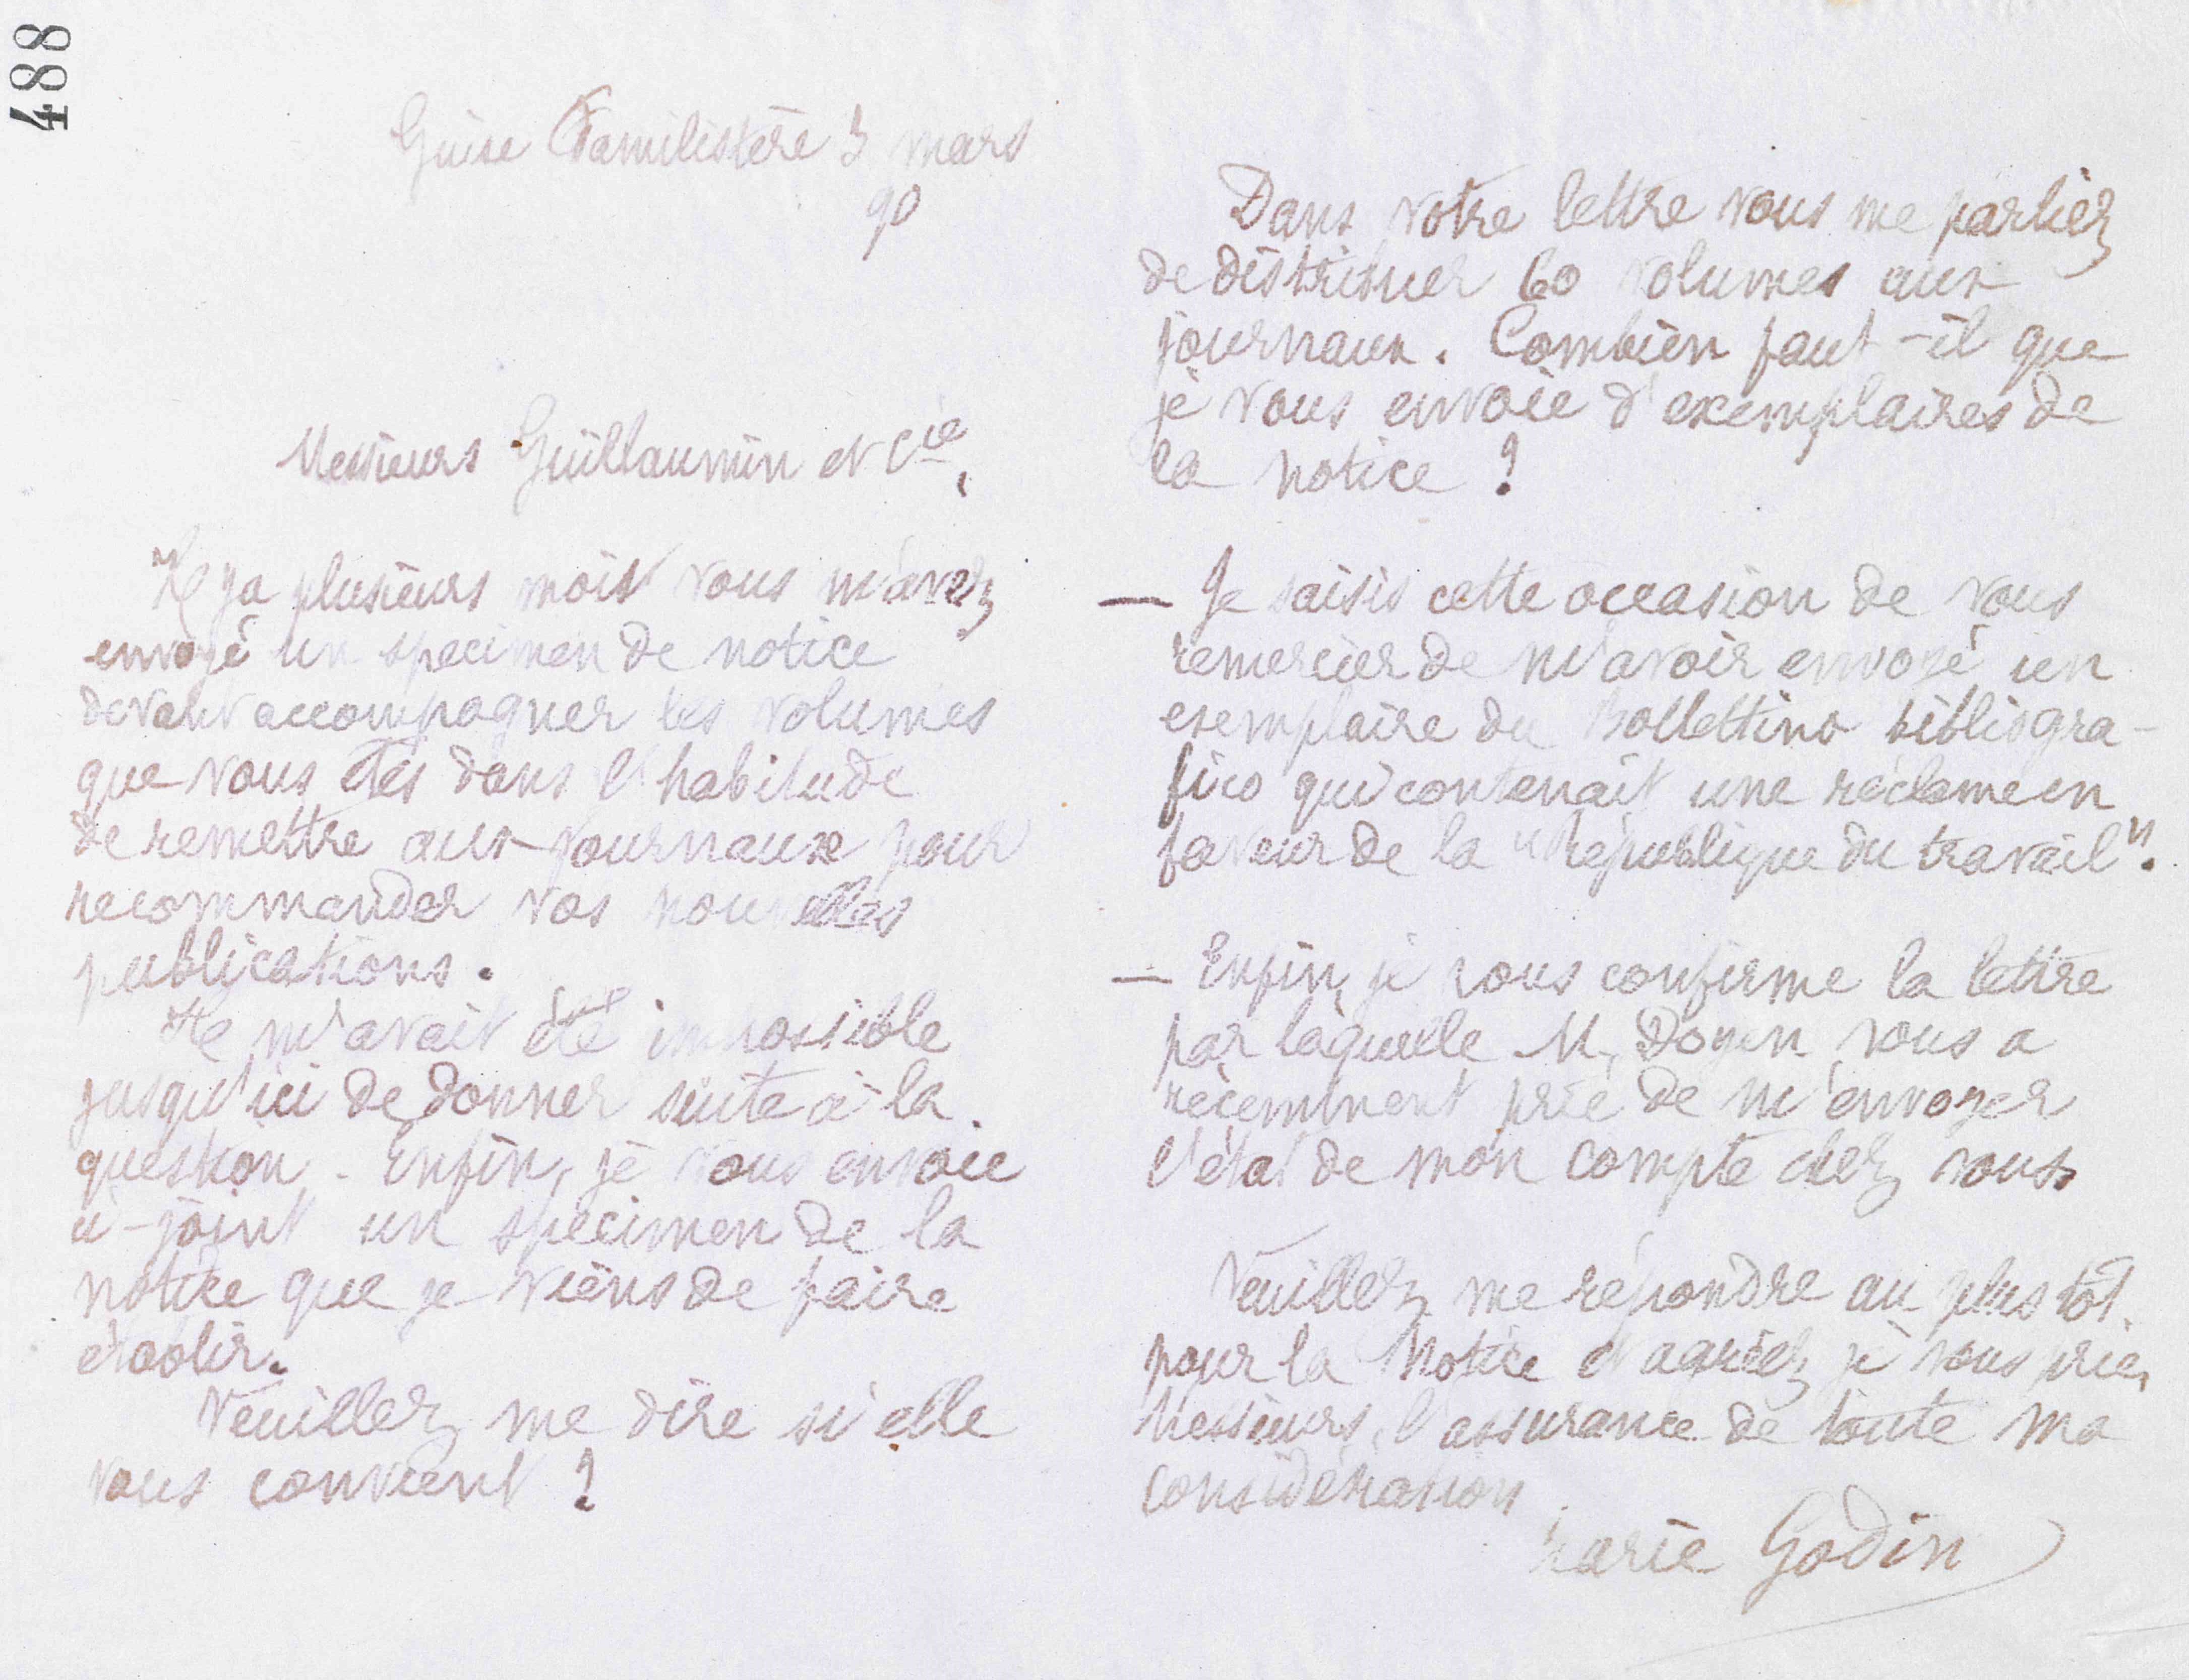 488
Guise Familistère 3 mars
90
Messieurs Guillaumin et Cie,
Il y a plusieurs mois vous m'avez
envoyé un specimen de notice
devant accompagner les volumes
que vous êtes dans l'habitude
de remettre aux journaux pour
recommander vos nouvelles
publications.
Il m'avait été impossible
jusqu'ici de donner suite à la
question. Enfin, je vous envoie
ci-joint un specimen de la
notice que je viens de faire
établir.
Veuillez me dire si elle
vous convient ?
Dans votre lettre vous me parliez
de distribuer 60 volumes aux
journaux. Combien faut-il que
je vous envoie d'exemplaires de
la notice ?
— Je saisis cette occasion de vous
remercier de m'avoir envoyé un
exemplaire du Bollettino bibliogra-
fico qui contenait une réclame en
faveur de la "République du travail".
— Enfin, je vous confirme la lettre
par laquelle M. Doyen vous a
récemment prié de m'envoyer
l'état de mon compte chez vous.
Veuillez me répondre au plus tôt
pour la Notice et agréez, je vous prie,
Messieurs, l'assurance de toute ma
considération
Marie Godin